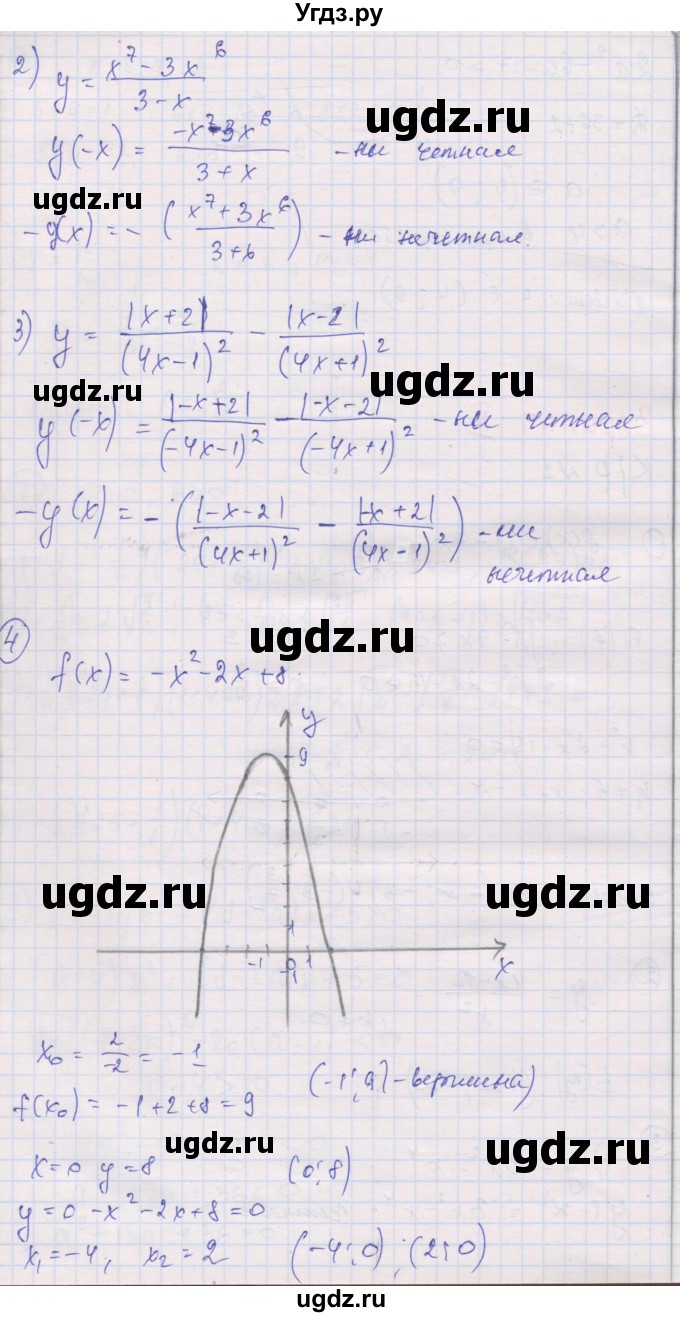 Угдз.ру
2) y = (x^7 - 3x^6)/(3 - x)
y(-x) = (-x^7-3x^6)/(3 + x) - ни четная
-y(x) = - ((x^7 + 3x^6)/(3+x)) - ни нечетная.
3) y = |x+2|/(4x-1)^2 - |x-2|/(4x+1)^2
y(-x) = |-x+2|/(-4x-1)^2 - |-x-2|/(-4x+1)^2 - ни четная
-y(x) = - (|-x-2|/(4x+1)^2 - |-x+2|/(4x-1)^2) - ни
нечетная
4
f(x) = -x^2-2x+8.
y
9
1
-1 0 1 x
-1
x₀ = 2/-2 = -1
(-1; 9) - вершина)
f(x₀) = -1+2+8 = 9
x=0 y=8 (0; 8)
y=0 -x^2-2x+8=0
x₁=-4, x₂=2 (-4; 0); (2; 0)
ugdz.ru
ugdz.ru
ugdz.ru
ugdz.ru
ugdz.ru
ugdz.ru
ugdz.ru
ugdz.ru
ugdz.ru
ugdz.ru